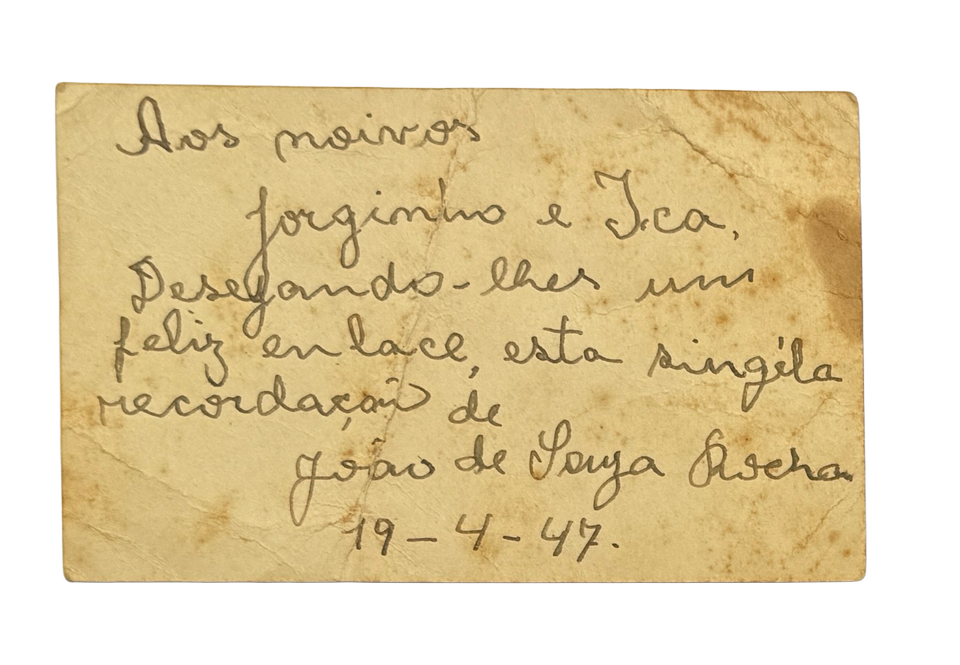 Aos noivos
Jorginho e Ica,
Desejando-lhes um
feliz enlace, esta singéla
recordação de
João de Souza Rocha
19-4-47.